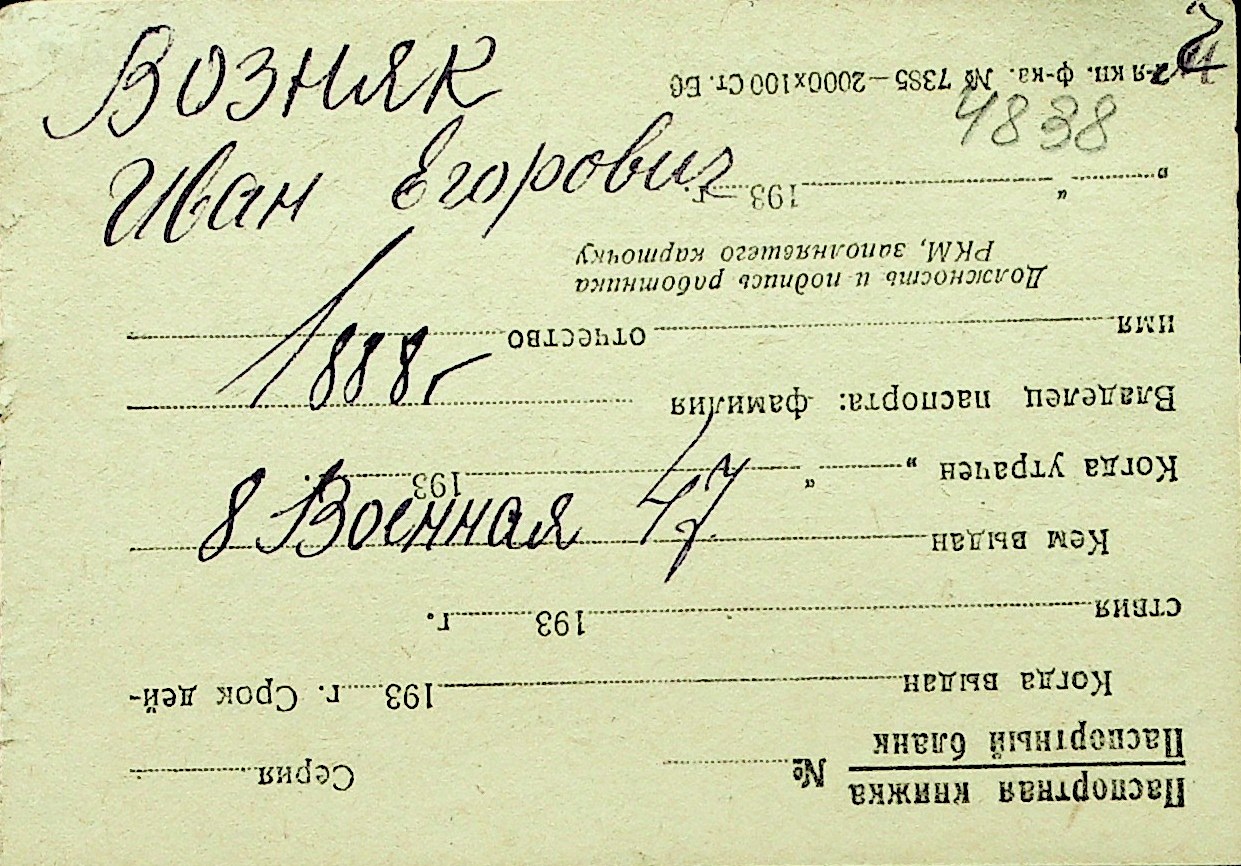 Возняк
Иван Егорович
1888 г
8 Военная 47
4838
Паспортная книжка
Паспортный бланк
№ Серия
Когда выдан 193 г. Срок дей-
ствия 193 г.
Кем выдан
Когда утрачен " " 193 г.
Владелец паспорта: фамилия
имя отчество
Должность и подпись работника
РКМ, заполнявшего карточку
" " 193 г.
кн. ф-ка. № 7385—2000х100 Ст. Б6